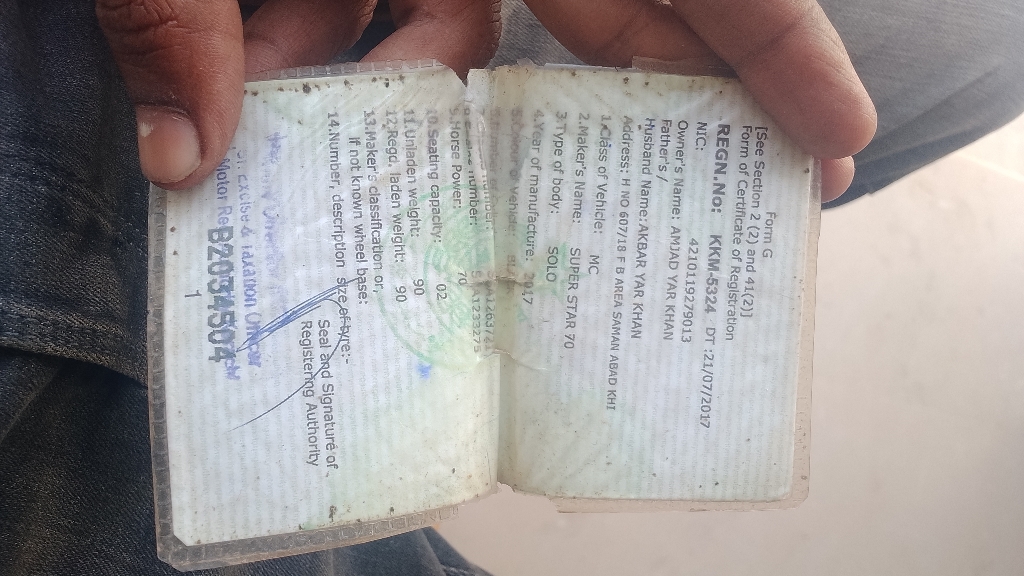 Form G
[See Section 2 (2) and 41(2)]
Form of Certificate of Registration
REGN.No: KKM-5324 DT :21/07/2017
NIC: 4210119279013
Owner's Name: AMJAD YAR KHAN
Father's /
Husband Name: AKBAR YAR KHAN
Address: H NO 607/18 F B AREA SAMAN ABAD KHI
1.Class of Vehicle: MC
2.Maker's Name: SUPER STAR 70
3.Type of body: SOLO
4.Year of manufacture: 2017
number:
9.Horse Power: 70
10.Seating capacity: 02
11.Unladen weight: 90
12.Regd. laden weight: 90
13.Maker's classification or,
If not known wheel base:
14.Number, description size of tyre:-
Seal and Signature of
Registering Authority
Excise & Taxation Officer
Motor
B2034504
1